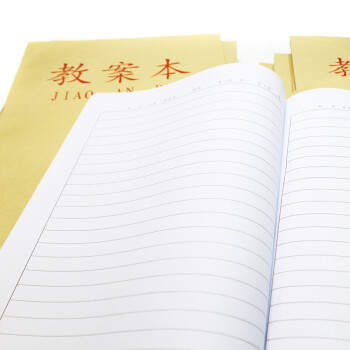 教案本
JIAO AN
教